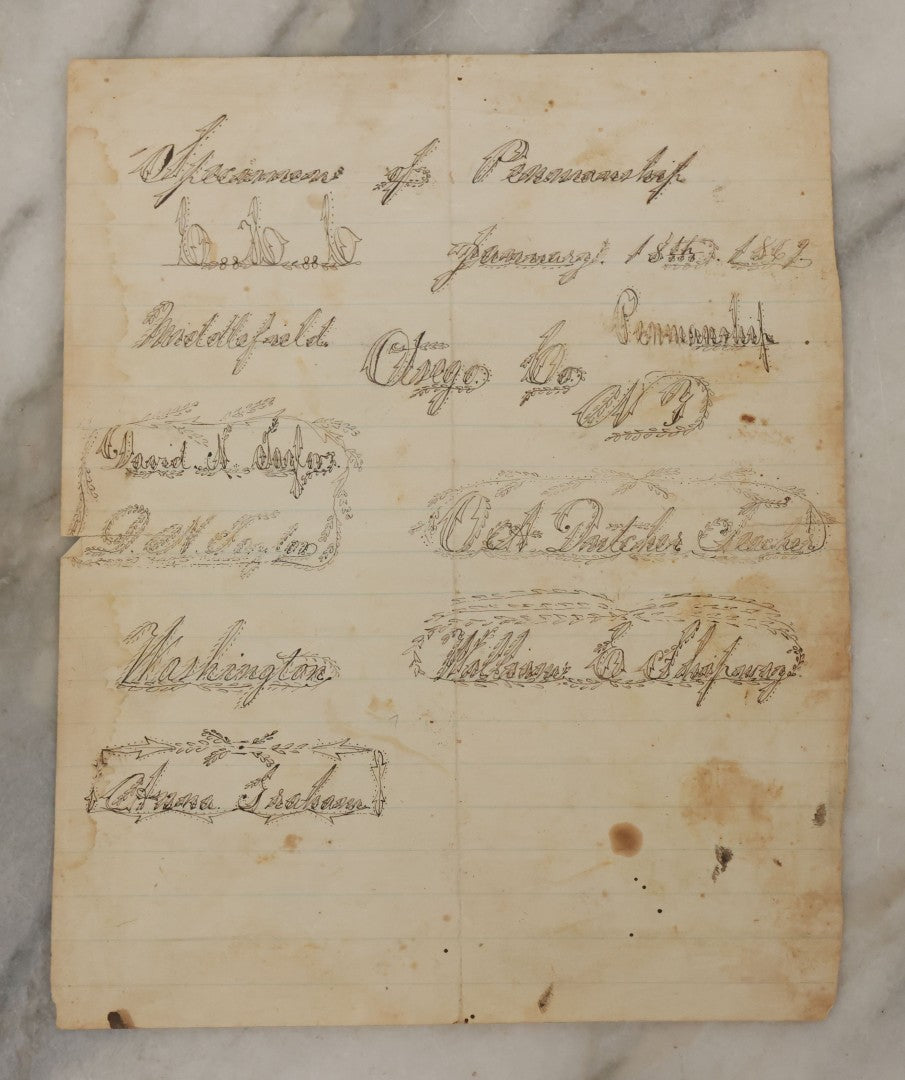 Specimens of Penmanship
January. 18th. 1869.
Middlefield.
Penmanship
Otsego Co.
N Y
David. N. Taylor.
D. N. Taylor
O A Dutcher Teacher
Washington.
William. E
Anna. Graham.